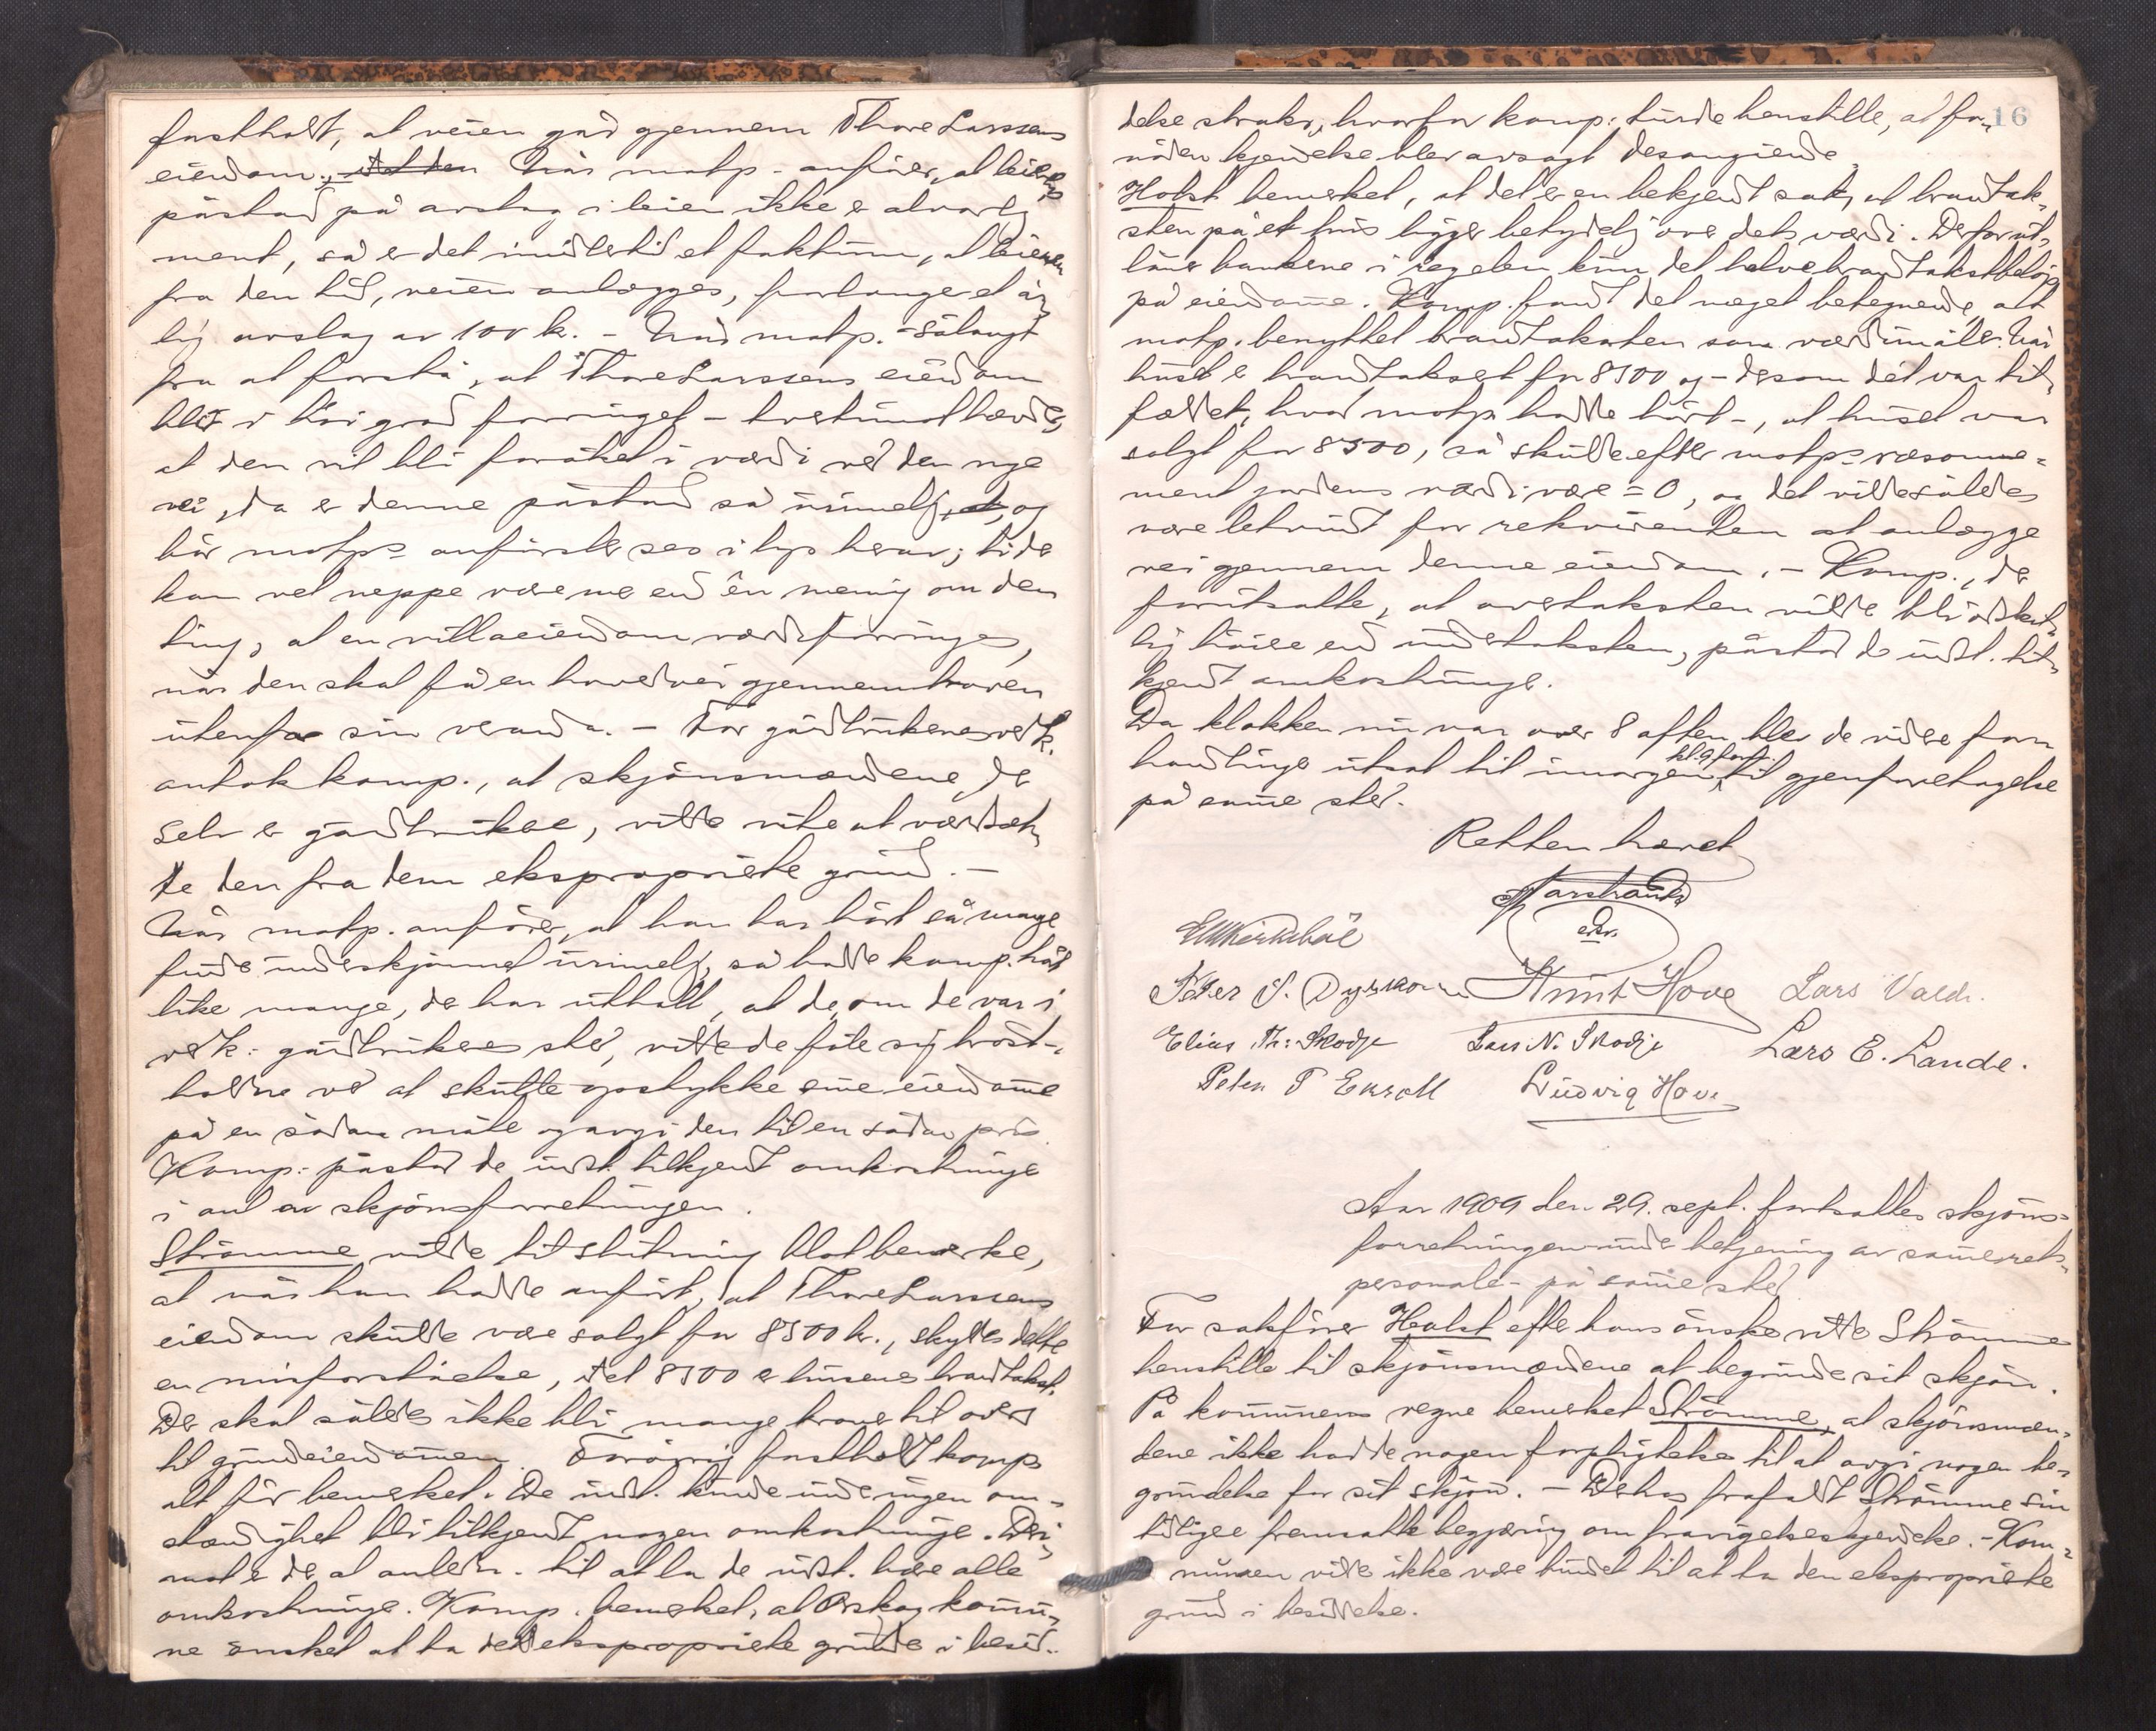 fastholdt, at veien går gjennem Thore Larssens
eiendom., at den Når motp. anfører, at leierens
påstand på avslag i leien ikke er alvorlig
ment, så er det imidlertid et faktum, at leieren
fra den tid, veien anlægges, forlanger et år,
lig avslag av 100 kr. - Når motp. - sålangt
fra at forstå, at Thore Larssens eiendom
blev i høi grad forringet - tvertimot hævder,
at den vil bli forøket i værdi ved den nye
vei, da er denne påstand så urimelig, at, og
bør motp's anførsler sees i lys herav; ti der
kan vel neppe være mer end én mening om den
ting, at en villaeiendom værdiforringes,
når den skal få en hovedvei gjennem haven
utenfor sin veranda. - For gårdbrukernes vedk.
antok komp., at skjønsmændene, der
selv er gårdbrukere, vilde vite at værdsæt,
te den fra dem eksproprierte grund. -
Når motp. anfører, at han har hørt så mange
finde underskjønnet urimelig, så hadde komp. hørt
like mange, der har uttalt, at de, om de var i
vedk: gårdbrukeres sted, vilde de føle sig brøst-
holdne ved at skulle opstykke sine eiendomme
på en sådan måte og avgi den til en sådan pris.
Komp: påstod de indst. tilkjendt omkostninger
i anl. av skjønsforretningen.
Strømme vilde til slutning blot bemerke,
at når han hadde anført, at Thore Larssens
eiendom skulde være solgt for 8500 kr., skyldtes dette
en misforståelse, idet 8500 er husenes brandtakst.
Der skal således ikke bli mange kroner til overs
til grundeiendommen. Forøvrig fastholdt komp.
alt før bemerket. De indst. kunde under ingen om-
stændighet bli tilkjendt nogen omkostninger. Der,
mot er der al anledn. til at la de indst. bære alle
omkostninger. Komp. bemerket, at Ørskog kommu,
ne ønsket at ta de eksproprierte grunde i besid-
16
delse straks, hvorfor komp: turde henstille, at for,
nøden kjendelse blev avsagt desangående.
Holst bemerket, at det er en bekjendt sak, at brandtak,
sten på et hus ligger betydelig over dets værdi. Derfor ut,
låner bankene i regelen kun det halve brandtakstbeløp
på eiendomme. Komp. fandt det meget betegnende, at
motp. benyttet brandtaksten som værdimåler. Når
huset er brandtakset for 8500 og - desom det var til,
fældet, hvad motp. hadde hørt -, at huset var
solgt for 8500, så skulde efter motp's ræsonne-
ment jordens værdi være = 0, og det vilde således
være letvindt for rekvirenten at anlægge
vei gjennem denne eiendom. - Komp., der
forutsatte, at overtaksten vilde bli adskil,
lig høiere end undertaksten, påstod de indst. til,
kjendt omkostninger.
Da klokken nu var over 8 aften blev de videre for,
handlinger utsat til imorgen kl. 9 form. til gjenforetagelse
på samme sted.
Retten hævet
Marstrander
edsv.
E M Kirkebøe
Peter S. Dyrkorn Knut Hove Lars Valde.
Elias Th: Skodje Lars N. Skodje Lars E. Lande.
Peten P Ekroll Ludvig Hove
Aar 1909 den 29. sept. fortsattes skjøns-
forretningen under betjening av samme rets,
personale - på samme sted.
For sakfører Holst efter hans ønske vilde Strømme
henstille til skjønsmændene at begrunde sit skjøn.
På kommunens vegne bemerket Strømme, at skjønsmæn,
dene ikke hadde nogen forpligtelse til at avgi nogen be,
grundelse for sit skjøn. - Derhos frafaldt Strømme sin
tidligere fremsatte begjæring om fravigelseskjendelse. - Kom-
munen vilde ikke være bundet til at ta den eksproprierte
grund i besiddelse.